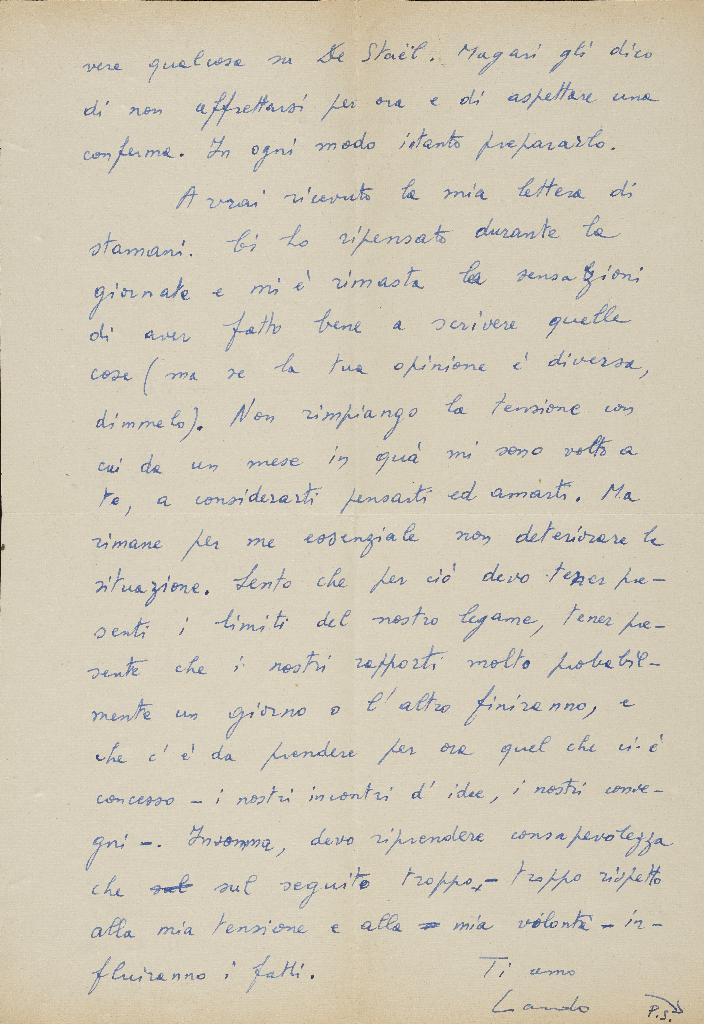 vere qualcosa su De Staël. Magari gli dico
di non affrettarsi per ora e di aspettare una
conferma. In ogni modo intanto prepararlo.
Avrai ricevuto la mia lettera di
stamani. Ci ho ripensato durante la
giornata e mi è rimasta la sensazioni
di aver fatto bene a scrivere quelle
cose (ma se la tua opinione è diversa,
dimmelo). Non rimpiango la tensione con
cui da un mese in quà mi sono volto a
te, a considerarti pensarti ed amarti. Ma
rimane per me essenziale non deteriorare la
situazione. Sento che per ciò devo tener pre-
senti i limiti del nostro legame, tener pre-
sente che i nostri rapporti molto probabil-
mente un giorno o l'altro finiranno, e
che c'è da prendere per ora quel che ci è
concesso – i nostri incontri d'idee, i nostri conve-
gni –. Insomma, devo riprendere consapevolezza
che sul sul seguito troppo, – troppo rispetto
alla mia tensione e alla mia volontà – in-
fluiranno i fatti.
Ti amo
Lando
P.S.